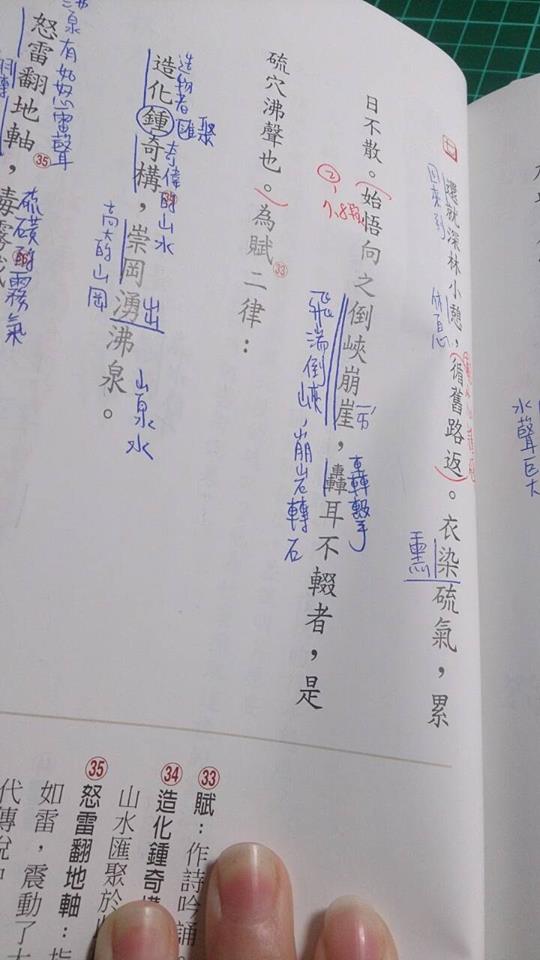 七
還就深林小憩，循舊路返。衣染硫氣，累
回來到
休息
熏
日不散。始悟向之倒峽崩崖，轟耳不輟者，是
②
ㄧㄞˊ
轟擊
飛湍倒峽，崩岩轉石
硫穴沸聲也。為賦㉝二律：
造化鍾奇構，崇岡湧沸泉。
造物者 匯聚
奇偉的山水
高大的山岡
出
山泉水
怒雷翻地軸㉟，毒霧
沸泉有如怒雷聲
硫磺的霧氣
水聲巨大
㉝ 賦：作詩吟誦。
㉞ 造化鍾奇構
山水匯聚於
㉟ 怒雷翻地軸：指
如雷，震動了
代傳說中